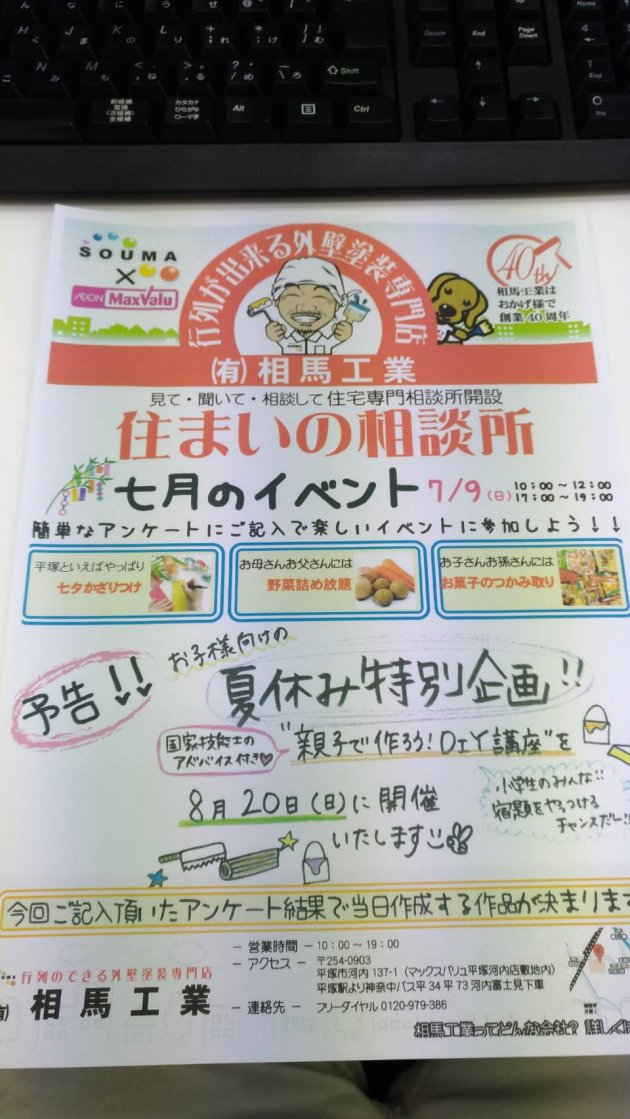 Delete
End
Page Down
Home
End
Shift
前候補
変換
(次候補)
全候補
カタカナ
ひらがな
ローマ字
Alt
Ctrl
Ins
SOUMA
×
ÆON MaxValu
行列が出来る外壁塗装専門店
(有)相馬工業
40th
相馬工業は
おかげ様で
創業40周年
見て・聞いて・相談して住宅専門相談所開設
住まいの相談所
七月のイベント 7/9(日) 10:00～12:00
17:00～19:00
簡単なアンケートにご記入で楽しいイベントに参加しよう！！
平塚といえばやっぱり
七夕かざりつけ
お母さんお父さんには
野菜詰め放題
お子さんお孫さんには
お菓子のつかみ取り
予告!!
お子様向けの
夏休み特別企画!!
国家技能士の
アドバイス付き♡
"親子で作ろう!DIY講座"を
8月20日(日)に開催
いたします
小学生のみんな!!
宿題をやっつける
チャンスだー!!
今回ご記入頂いたアンケート結果で当日作成する作品が決まります
行列のできる外壁塗装専門店
相馬工業
－ 営業時間 － 10：00～19：00
－ アクセス － 〒254-0903
平塚市河内137-1（マックスバリュ平塚河内店敷地内）
平塚駅より神奈中バス平34平73河内富士見下車
－ 連絡先 － フリーダイヤル 0120-979-386
相馬工業ってどんな会社? 詳しくは